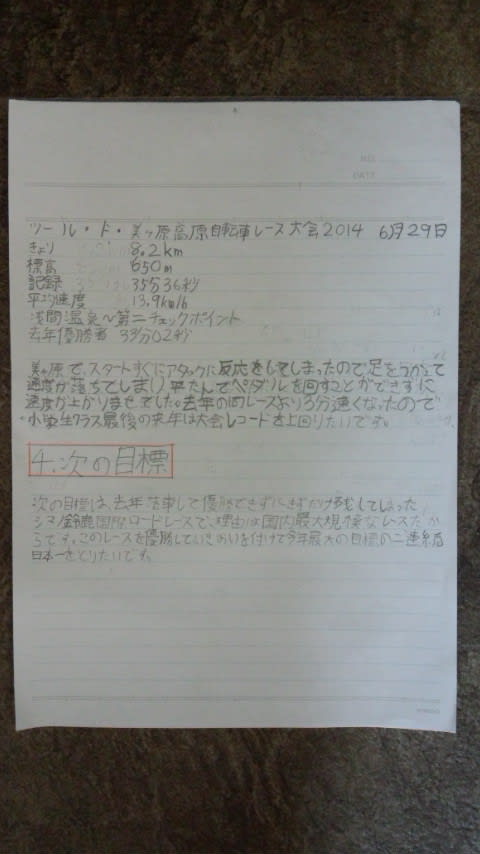 ツール・ド・美ヶ原高原自転車レース大会2014 6月29日
きょり 8.2km
標高 650m
記録 35分36秒
平均速度 13.9km/h
浅間温泉～第二チェックポイント
去年優勝者 33分02秒
美ヶ原で、スタートすぐにアタックに反応をしてしまったので足をつかって
速度が落ちてしまい平たんでペダルを回すことができずに
速度が上がりませでした。去年の同レースより3分速くなったので
小学生クラス最後の来年は大会レコードを上回りたいです。
4.次の目標
次の目標は、去年落車して優勝できずにきずだけ残してしまった
シマノ鈴鹿国際ロードレースで、理由は国内最大規模なレースだか
らです。このレースを優勝していきおいを付けて今年最大の目標の二連続
日本一をとりたいです。